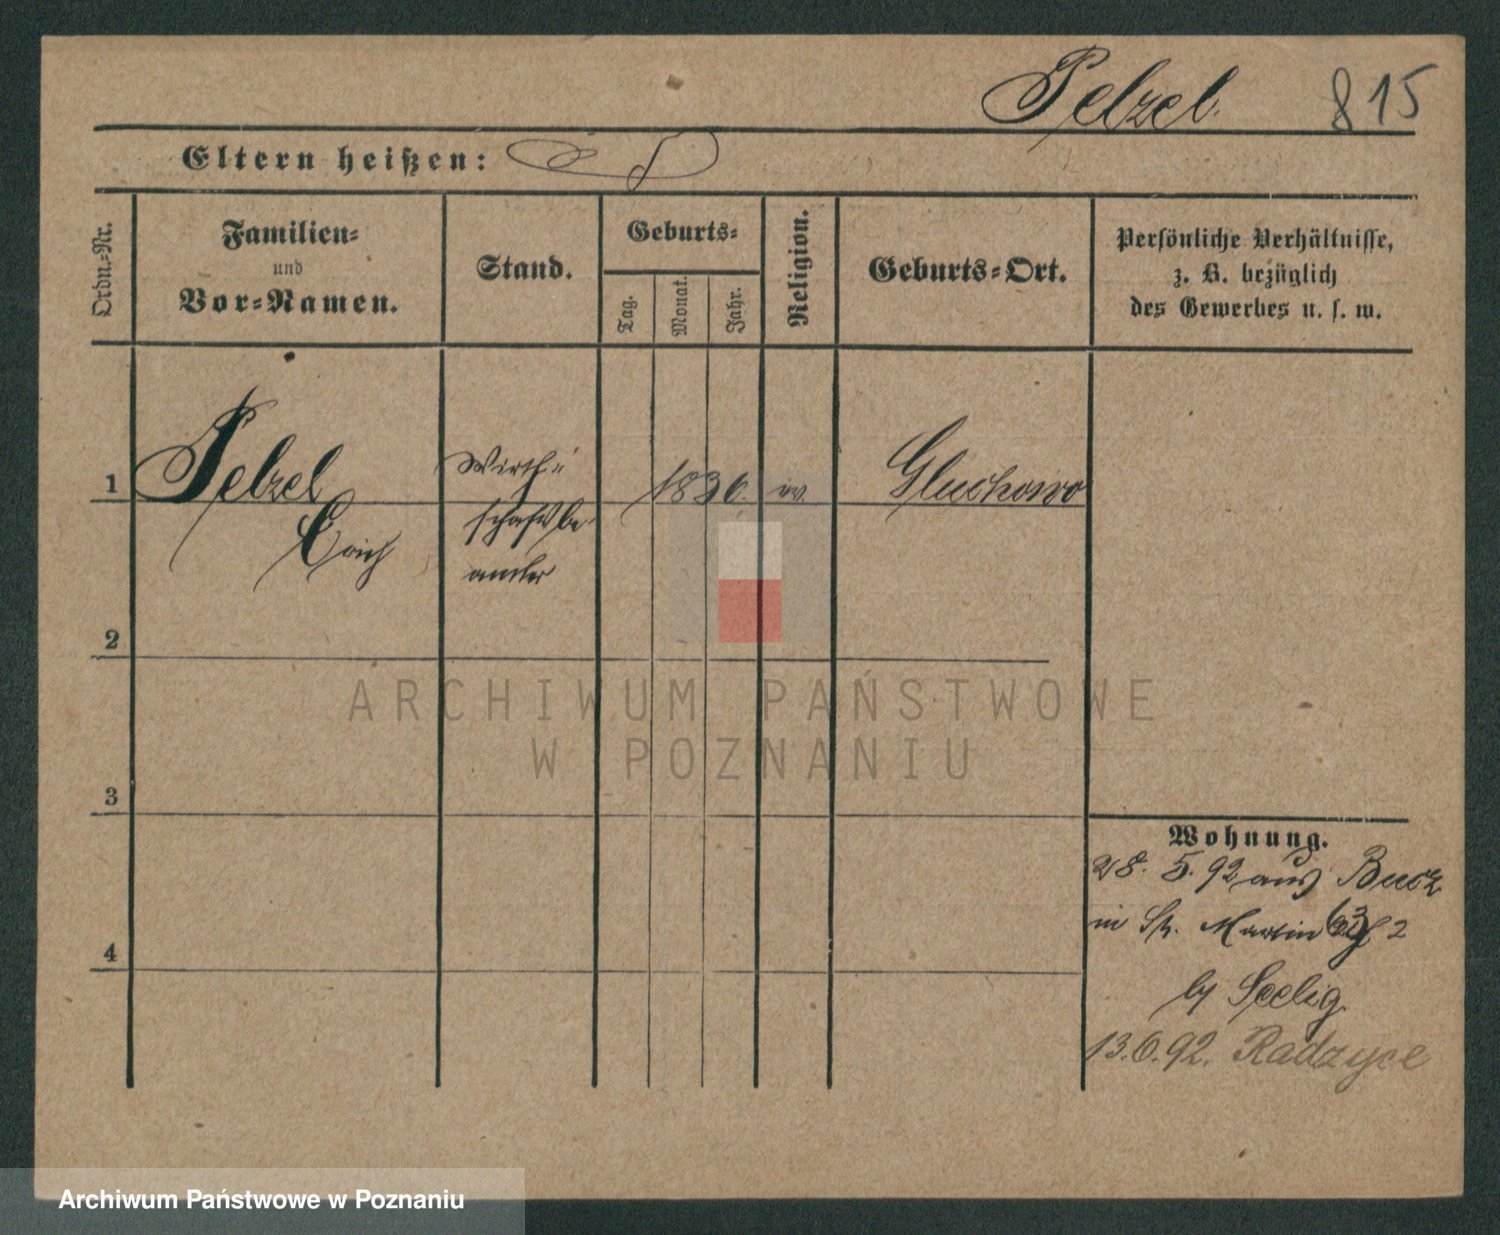 Pelzel. 815
Eltern heißen:
Ordn.-Nr.
Familien-
und
Vor-Namen.
Stand.
Geburts-
Tag.
Monat.
Jahr.
Religion.
Geburts-Ort.
Persönliche Verhältnisse,
z. B. bezüglich
des Gewerbes u. s. w.
1
Pelzel
Erich
Wirth-
schaftsbe-
amter
1836.
ev.
Gluchowo
2
3
4
ARCHIWUM PAŃSTWOWE
W POZNANIU
Wohnung.
28. 5. 92 aus Bucz
in St. Martin 2
by Seelig.
13.6.92. Radzyce
Archiwum Państwowe w Poznaniu